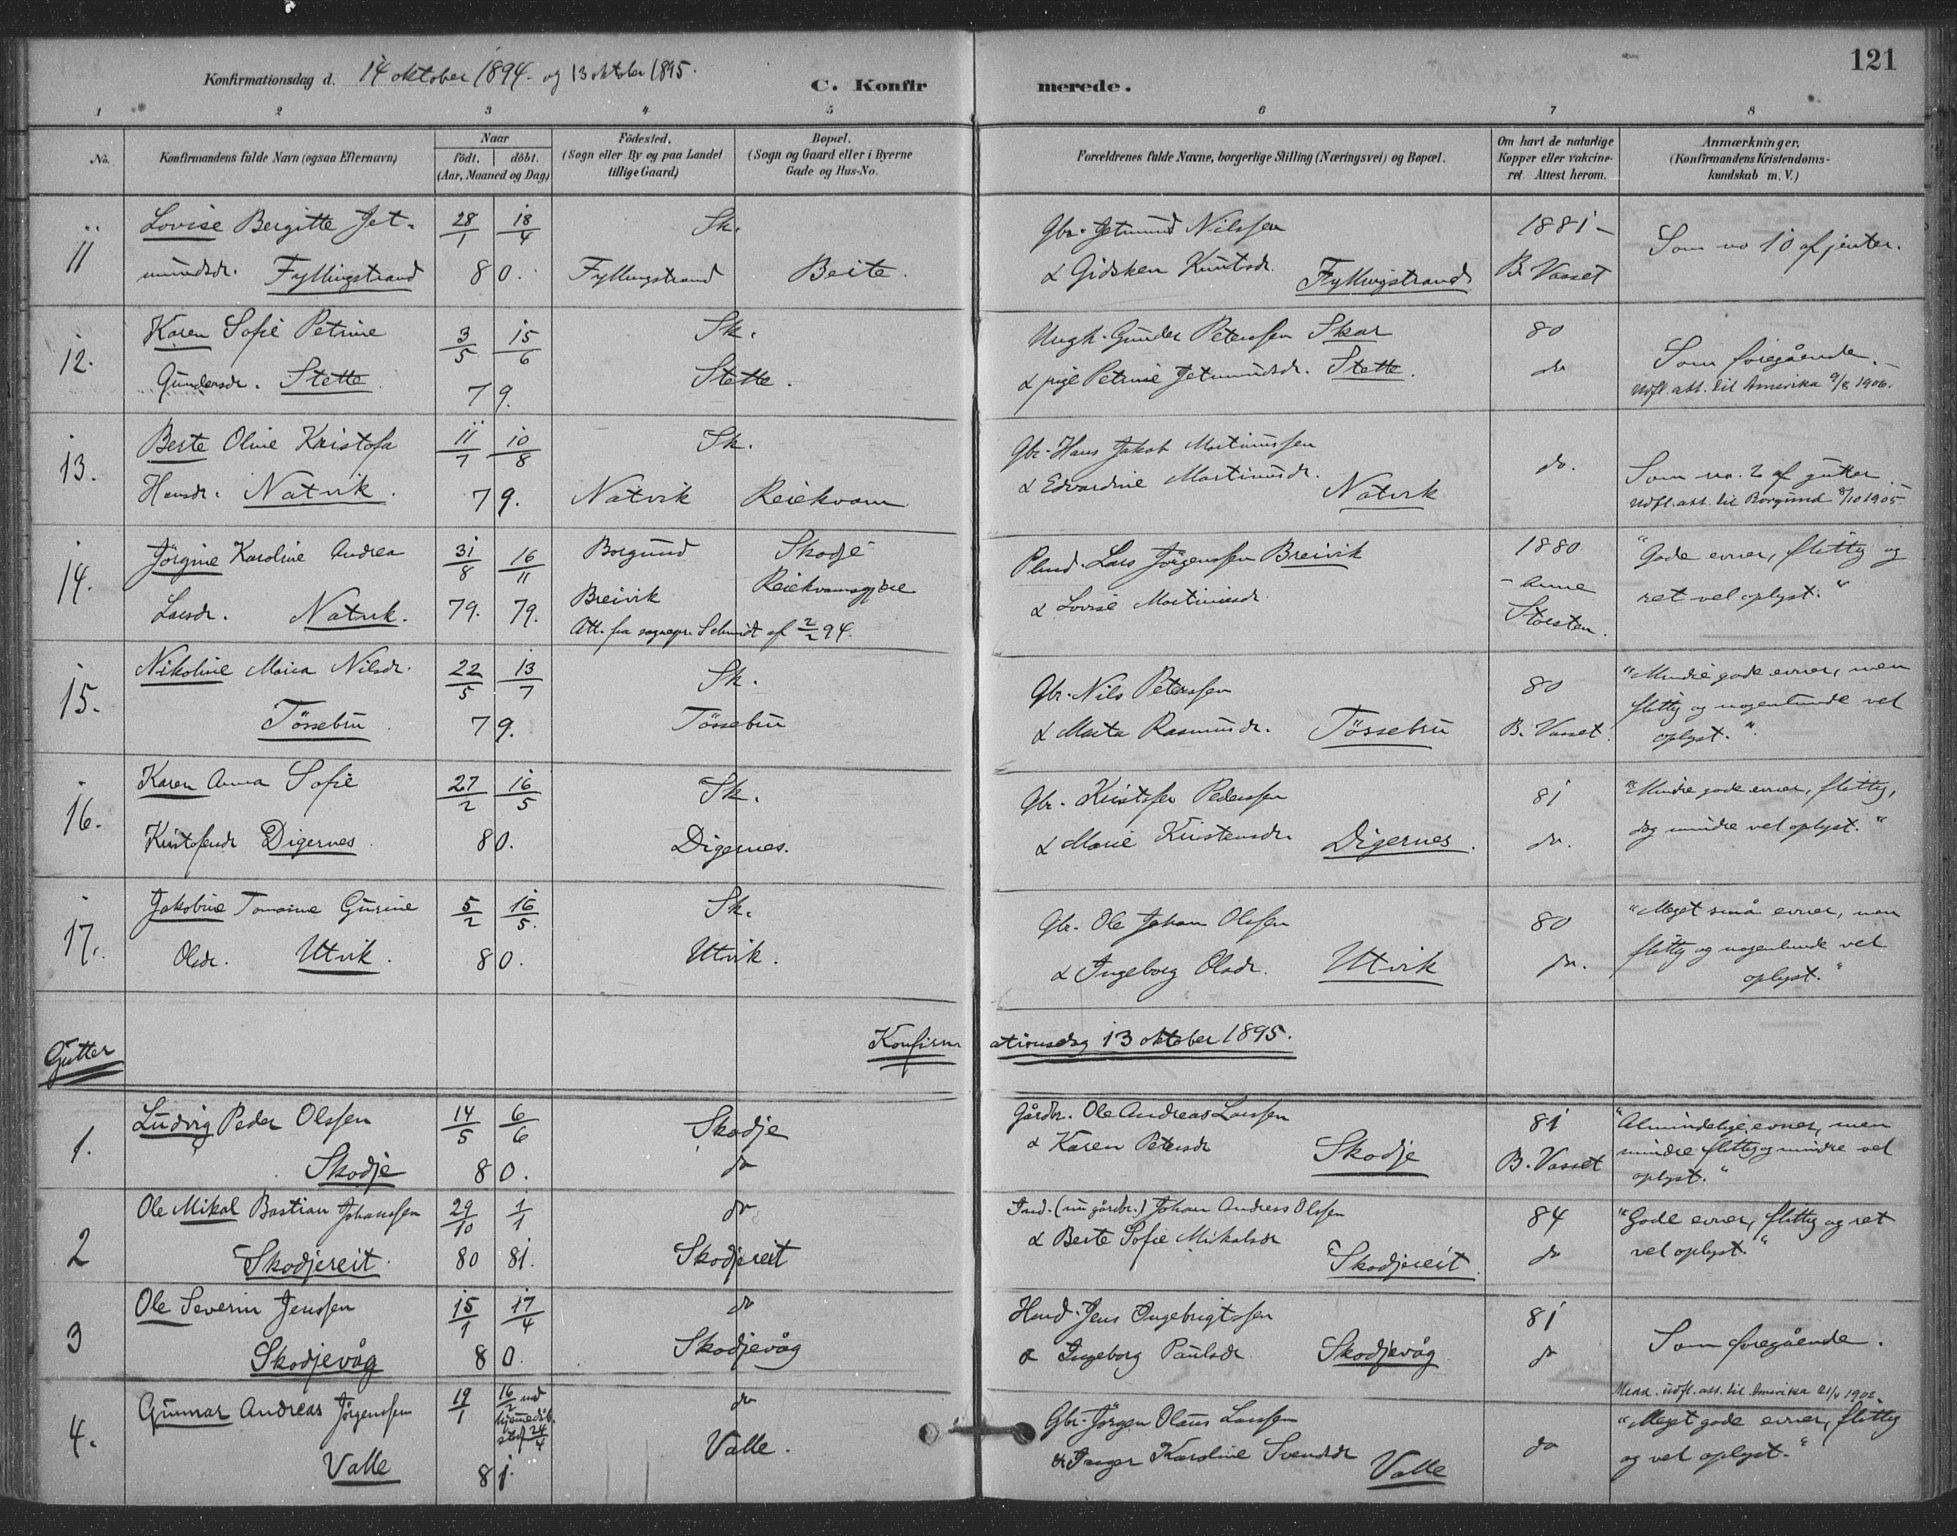 121
Konfirmationsdag d. 14 oktober 1894. og 13 oktober 1895.
C. Konfirmerede.
1 2 3 4 5 6 7 8
No.
Konfirmandens fulde Navn (ogsaa Efternavn)
Naar
födt. döbt.
(Aar, Maaned og Dag)
Födested.
(Sogn eller By og paa Landet
tillige Gaard)
Bopæl.
(Sogn og Gaard eller i Byerne
Gade og Hus-No.
Forældrenes fulde Navne, borgerlige Stilling (Næringsvei) og Bopæl.
Om havt de naturlige
Kopper eller vakcine-
ret. Attest herom.
Anmærkninger.
(Konfirmandens Kristendoms-
kundskab m. V.)
11 Lovise Bergitte Jet- 28/1 18/4 Sk. Gbr. Jetmund Nilssen 1881 - Som no 10 af jenter.
mundsdr. Fyllingstrand 80. Fyllingstrand Beite. & Gidsken Knutsdr. Fyllingstrand B. Vasset
12. Karen Sofie Petrine 3/5 15/6 Sk. Ungk. Gunder Peterssen Skar 80 Som foregående.
Gundersdr. Stette 79. Stette. & pige Petrine Jetmundsdr. Stette. do Udfl. att. til Amerika 9/8 1906.
13. Berte Oline Kristofa 11/7 10/8 Sk. Gbr. Hans Jakob Martinussen do. Som no. 2 af gutter.
Hansdr. Natvik. 79. Natvik Reiekvam & Edvardine Martinusdr. Natvik Udfl. att. til Borgund 8/10 1905
14. Jörgine Karoline Andrea 31/8 16/11 Borgund Skodje Lars Jörgenssen Breivik 1880 "Gode evner, flittig og
Larsdr. Natvik. 79. 79. Breivik Reiekvamsgjære & Lovise Martinusdr. - Anne Storsten. ret vel oplyst."
Att. fra sognepr. Schmidt af 2/2 94.
15. Nikoline Maria Nilsdr. 22/5 13/7 Sk. Gbr. Nils Peterssen 80 "Mindre gode evner, men
Tössebru 79. Tössebru & Marta Rasmusdr. Tössebru B. Vasset. flittig og nogenlunde vel
oplyst."
16. Karen Anna Sofie 27/2 16/5 Sk. Gbr. Kristofer Pederssen 81 "Mindre gode evner, flittig,
Kristofersdr Digernes. 80. Digernes. & Marie Kristensdr. Digernes. do. dog mindre vel oplyst."
17. Jakobine Tomasine Gurine 5/2 16/5. Sk. Gbr. Ole Johan Olssen 80 "Meget små evner, men
Olsdr. Utvik. 80. Utvik. & Ingeborg Olsdr. Utvik do. flittig og nogenlunde vel
oplyst."
Gutter Konfirmationsdag 13 oktober 1895.
1. Ludvig Peder Olssen 14/5 6/6 Skodje Gårdbr. Ole Andreas Larssen 81 "Almindelige evner, men
Skodje 80. do & Karen Petersdr Skodje B. Vasset mindre flittig og mindre vel
oplyst."
2 Ole Mikal Bastian Johanssen 29/10 1/1 do Ind. (nu gårdbr.) Johan Andreas Olssen 84 "Gode evner, flittig og ret
Skodjereit. 80 81. Skodjereit & Berte Sofie Mikalsdr Skodjereit. do vel oplyst."
3 Ole Severin Jenssen 15/1 17/4 do Jens Ingebrigtssen 81 Som foregående.
Skodjevåg 80. Skodjevåg & Ingeborg Paulsdr. Skodjevåg. do
4. Gunnar Andreas Jörgenssen 19/1 16/2 do Gbr. Jörgen Olaus Larssen do udfl. att. til Amerika 21/4 1902.
hjemmedöb. "Meget gode evner, flittig
stdf. 24/4
Valle 81. Valle. & Inger Karoline Svendsdr Valle og vel oplyst."